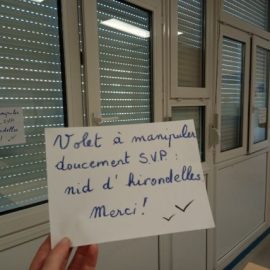 Volet à manipuler
doucement S.V.P :
nid d'hirondelles
Merci!
manipuler
S.V.P